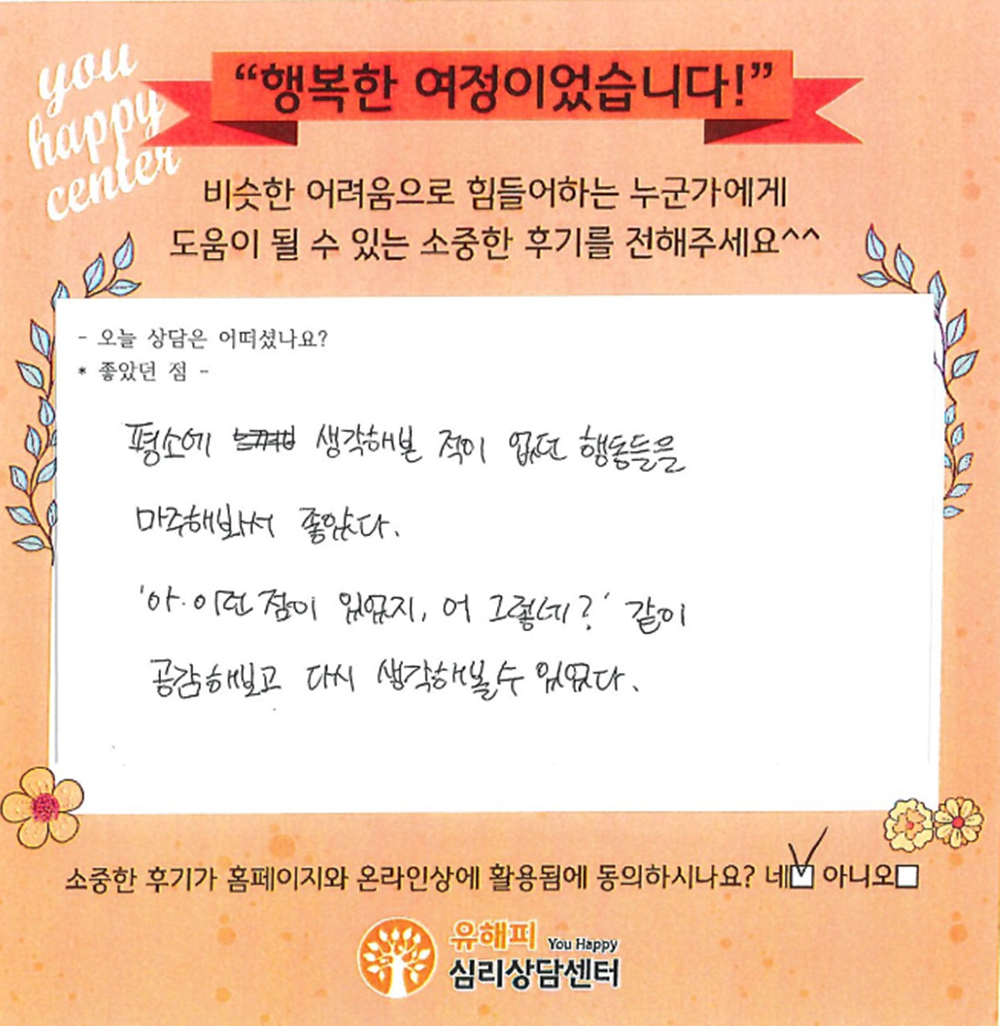 you
happy
center
“행복한 여정이었습니다!”
비슷한 어려움으로 힘들어하는 누군가에게
도움이 될 수 있는 소중한 후기를 전해주세요^^
- 오늘 상담은 어떠셨나요?
* 좋았던 점 -
평소에 생각해본 적이 없던 행동들을
마주해봐서 좋았다.
'아. 이런 점이 있었지, 어 그렇네?' 같이
공감해보고 다시 생각해볼 수 있었다.
소중한 후기가 홈페이지와 온라인상에 활용됨에 동의하시나요? 네 아니오
유해피 You Happy
심리상담센터